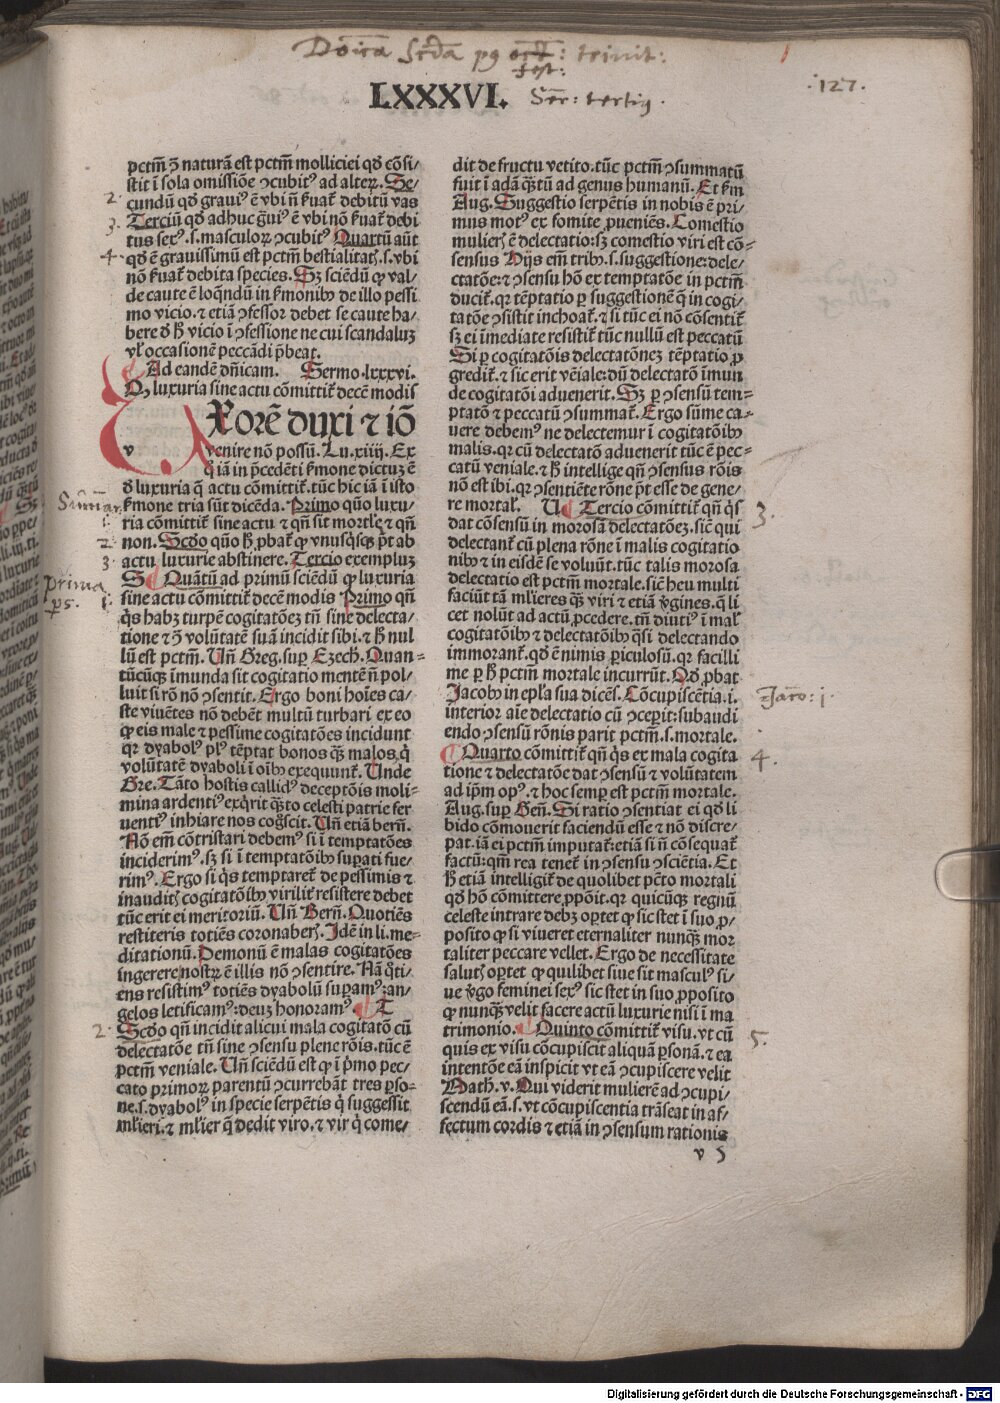 Do͞ica Scd͞a pꝫ oct͞: trinit:
fest:
LXXXVI.
Ser: tertiꝰ.
·127·
pct͞m ꝯ̄ naturā est pct͞m molliciei qđ cōsi/
stit ī sola omissiōe ꝯcubitꝰ ad alteꝝ. Se/
2.
cundū qđ grauiꝰ ē vbi n̄ ẜuat̄ debitū vas
3.
Terciū qđ adhuc g͛uiꝰ ē vbi nō ẜuat̄ debi
tus sexꝰ .s. masculoꝝ ꝯcubitꝰ Quartū aūt
4.
qđ ē grauissimū est pct͞m bestialitat̄ .s. vbi
nō ẜuat̄ debita species. Sꝫ sciēdū ꝙ val/
de caute ē loq̄ndū in ẜmonibꝰ de illo pessi
mo vicio. ⁊ etiā ꝯfessor debet se caute ha/
bere đ h̄ vicio ī ꝯfessione ne cui scandaluꝫ
vl̕ occasionē peccādi p̄beat.
Ad eandē dn̄icam. Sermo .lxxxvi.
Qꝫ luxuria sine actu cōmittit̄ decē modis
Uxorē duxi ⁊ iō
v
venire nō possū. Lu. xiiij. Ex
q̊ iā in p̄cedēti ẜmone dictuꝫ ē
đ luxuria q̄ actu cōmittit̄. tūc hic iā ī isto
Sūmar.
ẜmone tria sūt dicēda. Primo quō luxu/
1.
ria cōmittit̄ sine actu ⁊ qn̄ sit mortl̕e ⁊ qn̄
2.
non. Scđo quō h̄ ꝓbat̄ ꝙ vnusq̄sqꝫ p̄t ab
3.
actu luxurie abstinere. Tercio exempluꝫ
Prima
S Quātū ad primū sciēdū ꝙ luxuria
ps. 1.
sine actu cōmittit̄ decē modis Primo qn̄
q̊s habꝫ turpē cogitatōeꝫ tn̄ sine delecta/
tione ⁊ ꝯ̄ volūtatē suā incidit sibi. ⁊ h̄ nul
lū est pct͞m. Un̄ Greg. suꝑ Ezech. Quan=
tūcūqꝫ īmunda sit cogitatio mentē n̄ pol/
luit si rō nō ꝯsentit. Ergo boni hoīes ca/
ste viuētes nō debēt multū turbari ex eo
ꝙ eis male ⁊ pessime cogitatōes incidunt
qꝛ dyabolꝰ plꝰ tēptat bonos qꝫ malos. q̊
volūtatē dyaboli ī oībꝰ exequunt̄. Unde
Gre. Tāto hostis callidꝰ deceptōis moli=
mina ardentiꝰ exq̊rit qꝫto celesti patrie fer
uentiꝰ inhiare nos cog̊scit. Un̄ etiā bern̄.
Nō em̄ cōtristari debemꝰ si ī temptatōes
inciderimꝰ. sꝫ si ī temptatōibꝰ suꝑati fue/
rimꝰ. Ergo si q̊s temptaret̄ de pessimis ⁊
inauditꝭ cogitatōibꝰ virilit̄ resistere debet
tūc erit ei meritoriū. Un̄ Bern̄. Quotiēs
restiteris totiēs coronaberꝭ. Idē in li. me=
ditationū. Demonū ē malas cogitatōes
ingerere nostꝝ ē illis nō ꝯsentire. Nā q̊ti/
ens resistimꝰ totiēs dyabolū suꝑamꝰ: an/
gelos letificamꝰ: deuꝫ honoramꝰ. T
2.
Scđo qn̄ incidit alicui mala cogitatō cū
delectatōe tn̄ sine ꝯsensu plene rōis. tūc ē
pct͞m veniale. Un̄ sciēdū est ꝙ ī p̊mo pec/
cato primoꝝ parentū ꝯcurrebāt tres ꝑso=
ne .s. dyabolꝰ in specie serpētis q̊ suggessit
ml̕ieri. ⁊ ml̕ier q̄ dedit viro. ⁊ vir q̊ come/
dit de fructu vetito. tūc pct͞m ꝯsummatū
fuit ī adā qꝫtū ad genus humanū. Et ẜm
Aug. Suggestio serpētis in nobis ē pri/
mus motꝰ ex fomite ꝓueniēs. Comestio
mulierꝭ ē delectatio: sꝫ comestio viri est cō=
sensus Hijs em̄ tribꝰ .s. suggestione: dele/
ctatōe: ⁊ ꝯsensu hō ex temptatōe in pct͞m
ducit̄. qꝛ tēptatio ꝑ suggestionē q̄ in cogi/
tatōe ꝯsistit inchoat̄. ⁊ si tūc ei nō cōsentit̄
sꝫ ei īmediate resistit̄ tūc nullū est peccatū
Si ꝑ cogitatōis delectatōneꝫ tēptatio ꝓ
gredit̄. ⁊ sic erit vēiale: dū delectatō īmun
de cogitatōi aduenerit. Sꝫ ꝑ ꝯsensū tem=
ptatō ⁊ peccatū ꝯsummat̄. Ergo sūme ca/
uere debemꝰ ne delectemur ī cogitatōibꝰ
malis. qꝛ cū delectatō aduenerit tūc ē pec/
catū veniale. ⁊ h̄ intellige qn̄ ꝯsensus rōis
nō est ibi. qꝛ ꝯsentiēte rōne p̄t esse de gene/
3.
re mortal̕. U Tercio cōmittit̄ qn̄ q̊s
dat cōsensū in morosā delectatōeꝫ. sic̄ qui
delectant̄ cū plena rōne ī malis cogitatio
nibꝰ ⁊ in eisdē se voluūt. tūc talis morosa
delectatio est pct͞m mortale. sic̄ heu multi
faciūt tā ml̕ieres qꝫ viri ⁊ etiā v̕gines. q̊ li
cet nolūt ad actū ꝓcedere. tn̄ diutiꝰ ī mal̕
cogitatōibꝰ ⁊ delectatōibꝰ q̊si delectando
immorant̄. qđ ē nimis ꝑiculosū. qꝛ facilli
me ꝑ h̄ pct͞m mortale incurrūt. Qđ ꝓbat
Jaco: i
Jacobꝰ in epl̕a sua dicēs. Cōcupiscētia .i.
interior aīe delectatio cū ꝯceꝑit: subaudi
endo ꝯsensū rōnis parit pct͞m .s. mortale.
4.
Quarto cōmittit̄ qn̄ q̊s ex mala cogita
tione ⁊ delectatōe dat ꝯsensū ⁊ volūtatem
ad ip̄m opꝰ. ⁊ hoc semꝑ est pct͞m mortale.
Aug. suꝑ Gen̄. Si ratio ꝯsentiat ei qđ li
bido cōmouerit faciendū esse ⁊ nō discre/
pat. iā ei pct͞m imputat̄: etiā si n̄ cōsequat̄
factū: qm̄ rea tenet̄ in ꝯsensu ꝯsciētia. Et
h̄ etiā intelligit̄ de quolibet pctō mortali
qđ hō cōmittere ꝓpōit. qꝛ quicūqꝫ regnū
celeste intrare debꝫ oꝑtet ꝙ sic stet ī suo ꝓ/
posito ꝙ si viueret eternaliter nunqꝫ mor
taliter peccare vellet. Ergo de necessitate
salutꝭ oꝑtet ꝙ quilibet siue sit masculꝰ si/
ue v̕go feminei sexꝰ sic stet in suo ꝓposito
ꝙ nunqꝫ velit facere actū luxurie nisi ī ma
5.
trimonio. Quinto cōmittit̄ visu. vt cū
quis ex visu cōcupiscit aliquā ꝑsonā. ⁊ ea
intentōe eā inspicit vt eā ꝯcupiscere velit
Math. v. Qui viderit mulierē ad ꝯcupi/
scendū eā .s. vt cōcupiscentia trāseat in af/
fectum cordis ⁊ etiā in ꝯsensum rationis
v 5
Digitalisierung gefördert durch die Deutsche Forschungsgemeinschaft - DFG